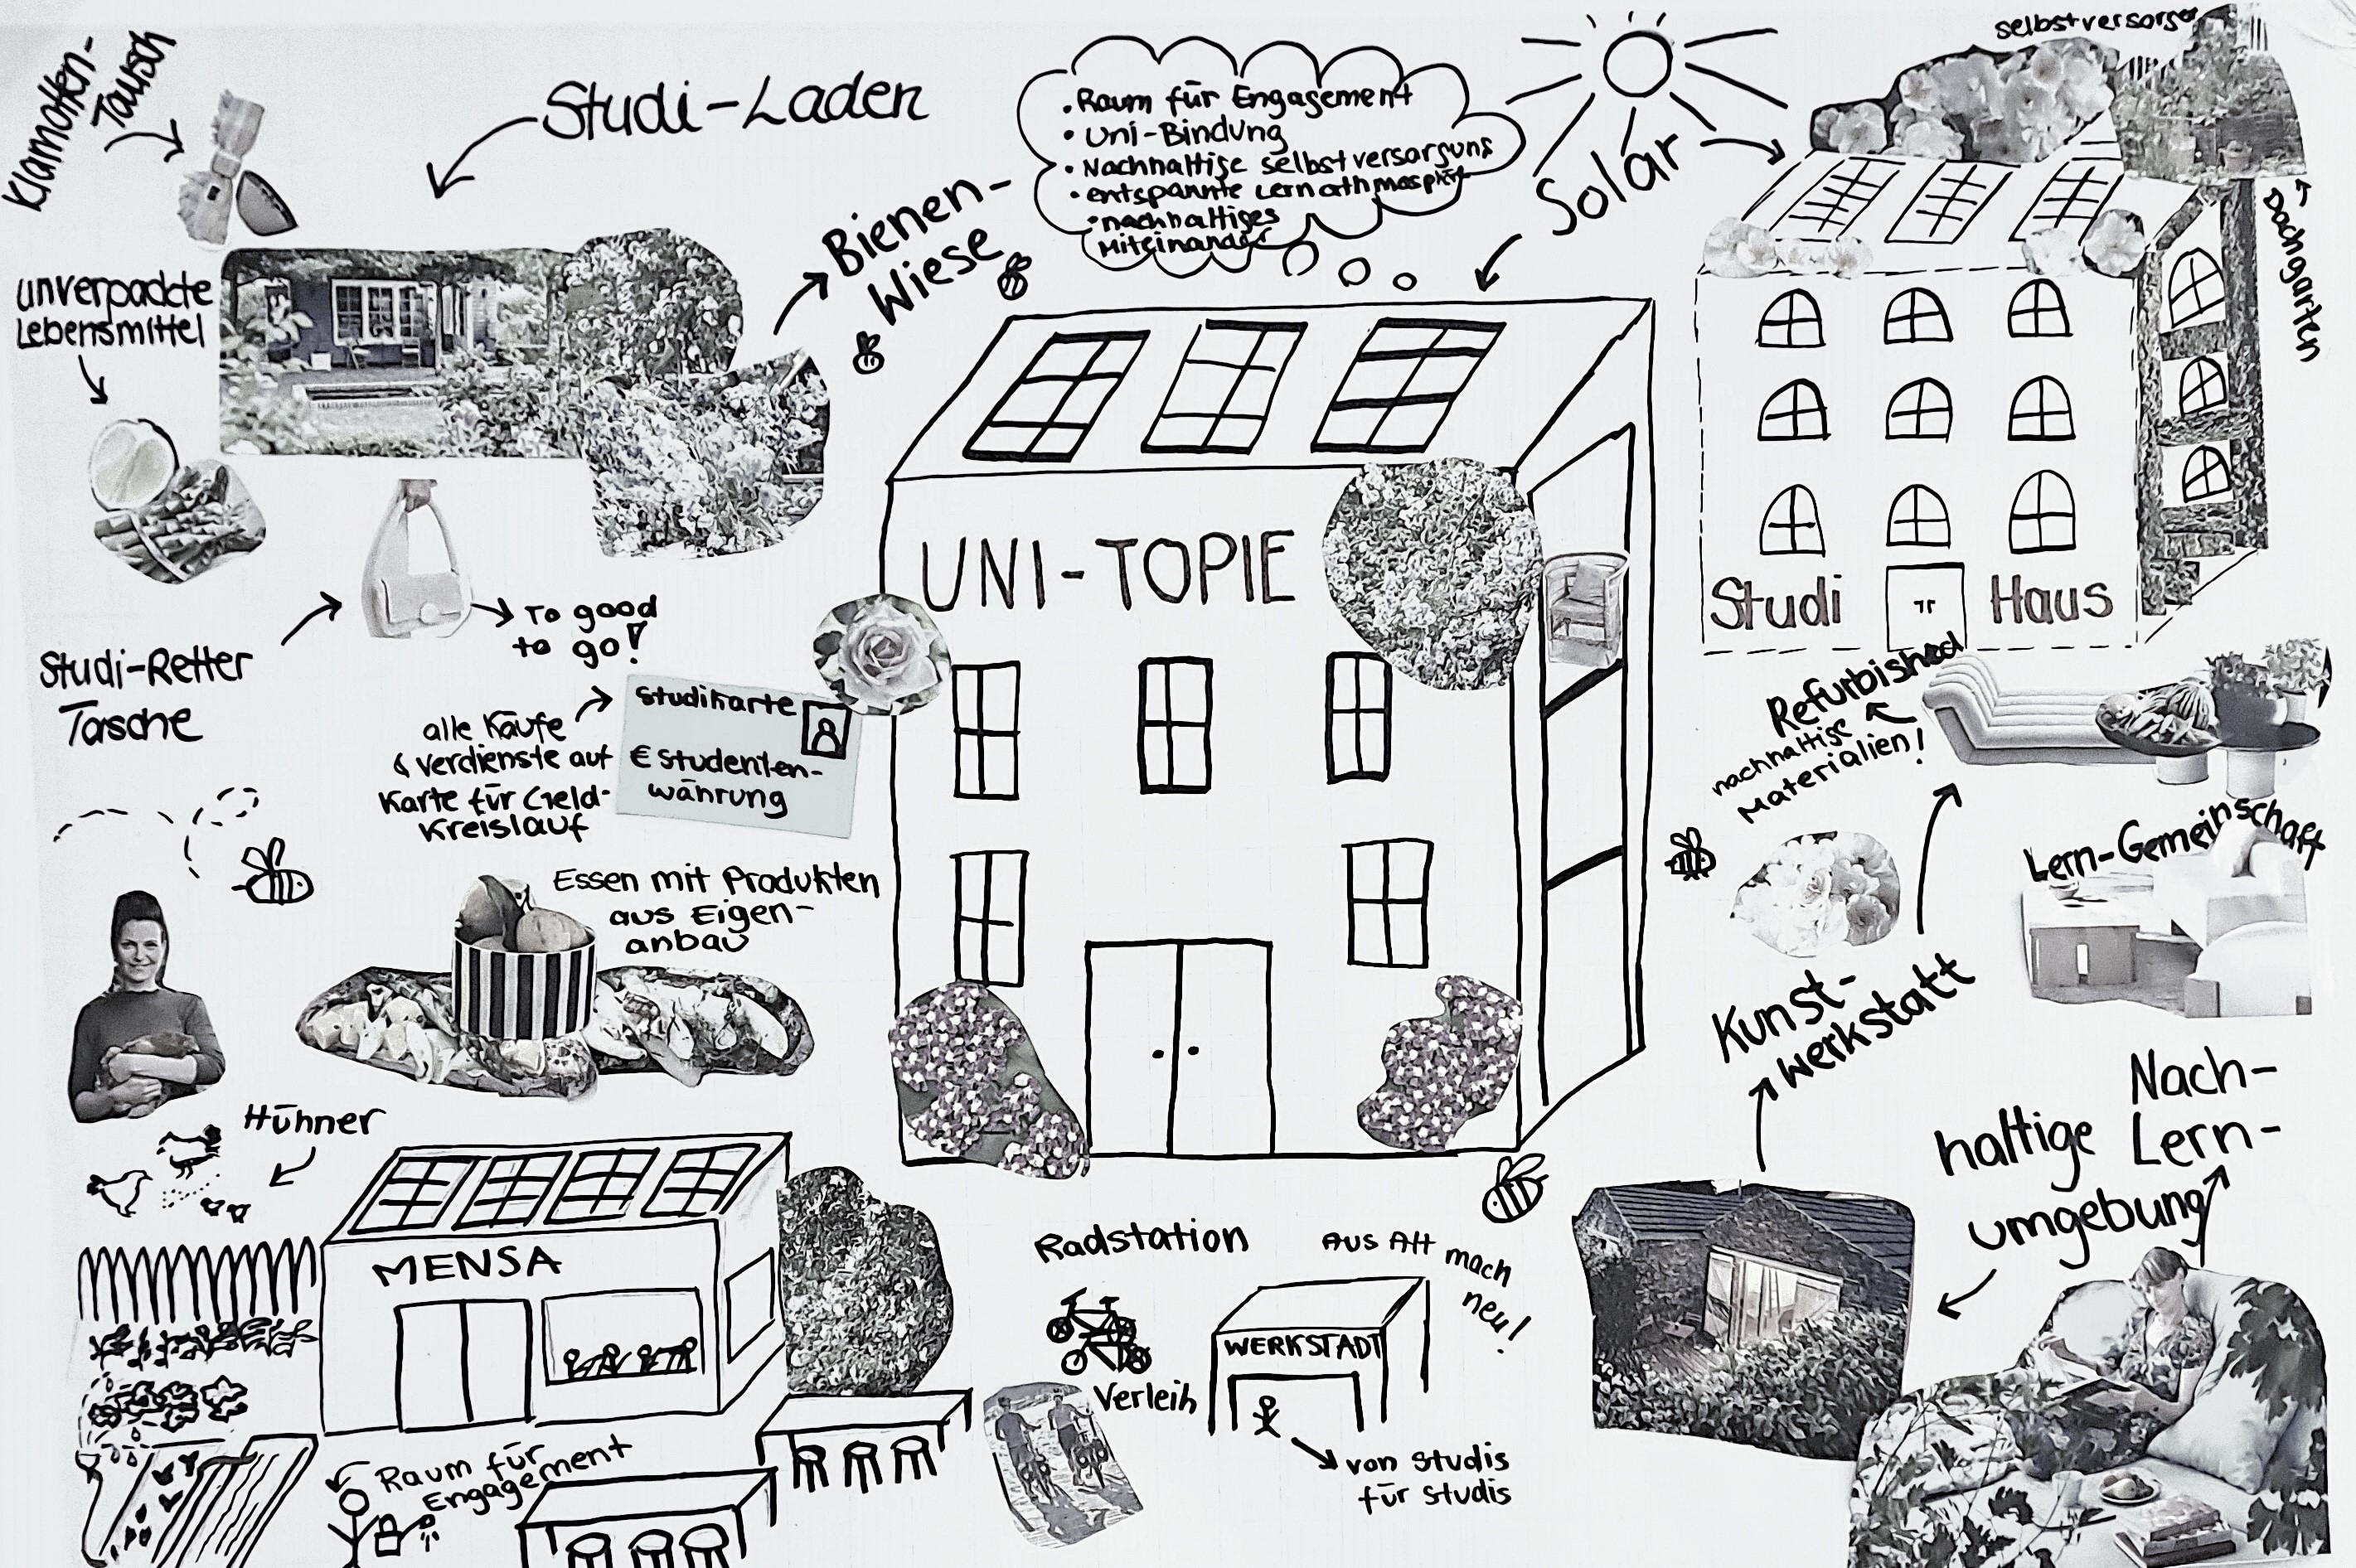 Klamotten-
Tausch
Studi-Laden
• Raum für Engagement
• Uni-Bindung
• Nachhaltige selbstversorgung
• entspannte Lernathmosphäre
• nachhaltiges
Miteinander
Solar
selbstversorger
Dachgarten
Bienen-
Wiese
unverpackte
Lebensmittel
UNI-TOPIE
Studi Haus
To good
to go!
Studi-Retter
Tasche
alle Käufe
& verdienste auf
Karte für Geld-
Kreislauf
Studikarte
€ Studenten-
währung
Refurbished
nachhaltige
Materialien!
Lern-Gemeinschaft
Essen mit Produkten
aus Eigen-
anbau
Kunst-
werkstatt
Hühner
Nach-
haltige Lern-
umgebung
MENSA
Radstation
Verleih
Aus Alt mach
neu!
WERKSTADT
von Studis
für Studis
Raum für
Engagement